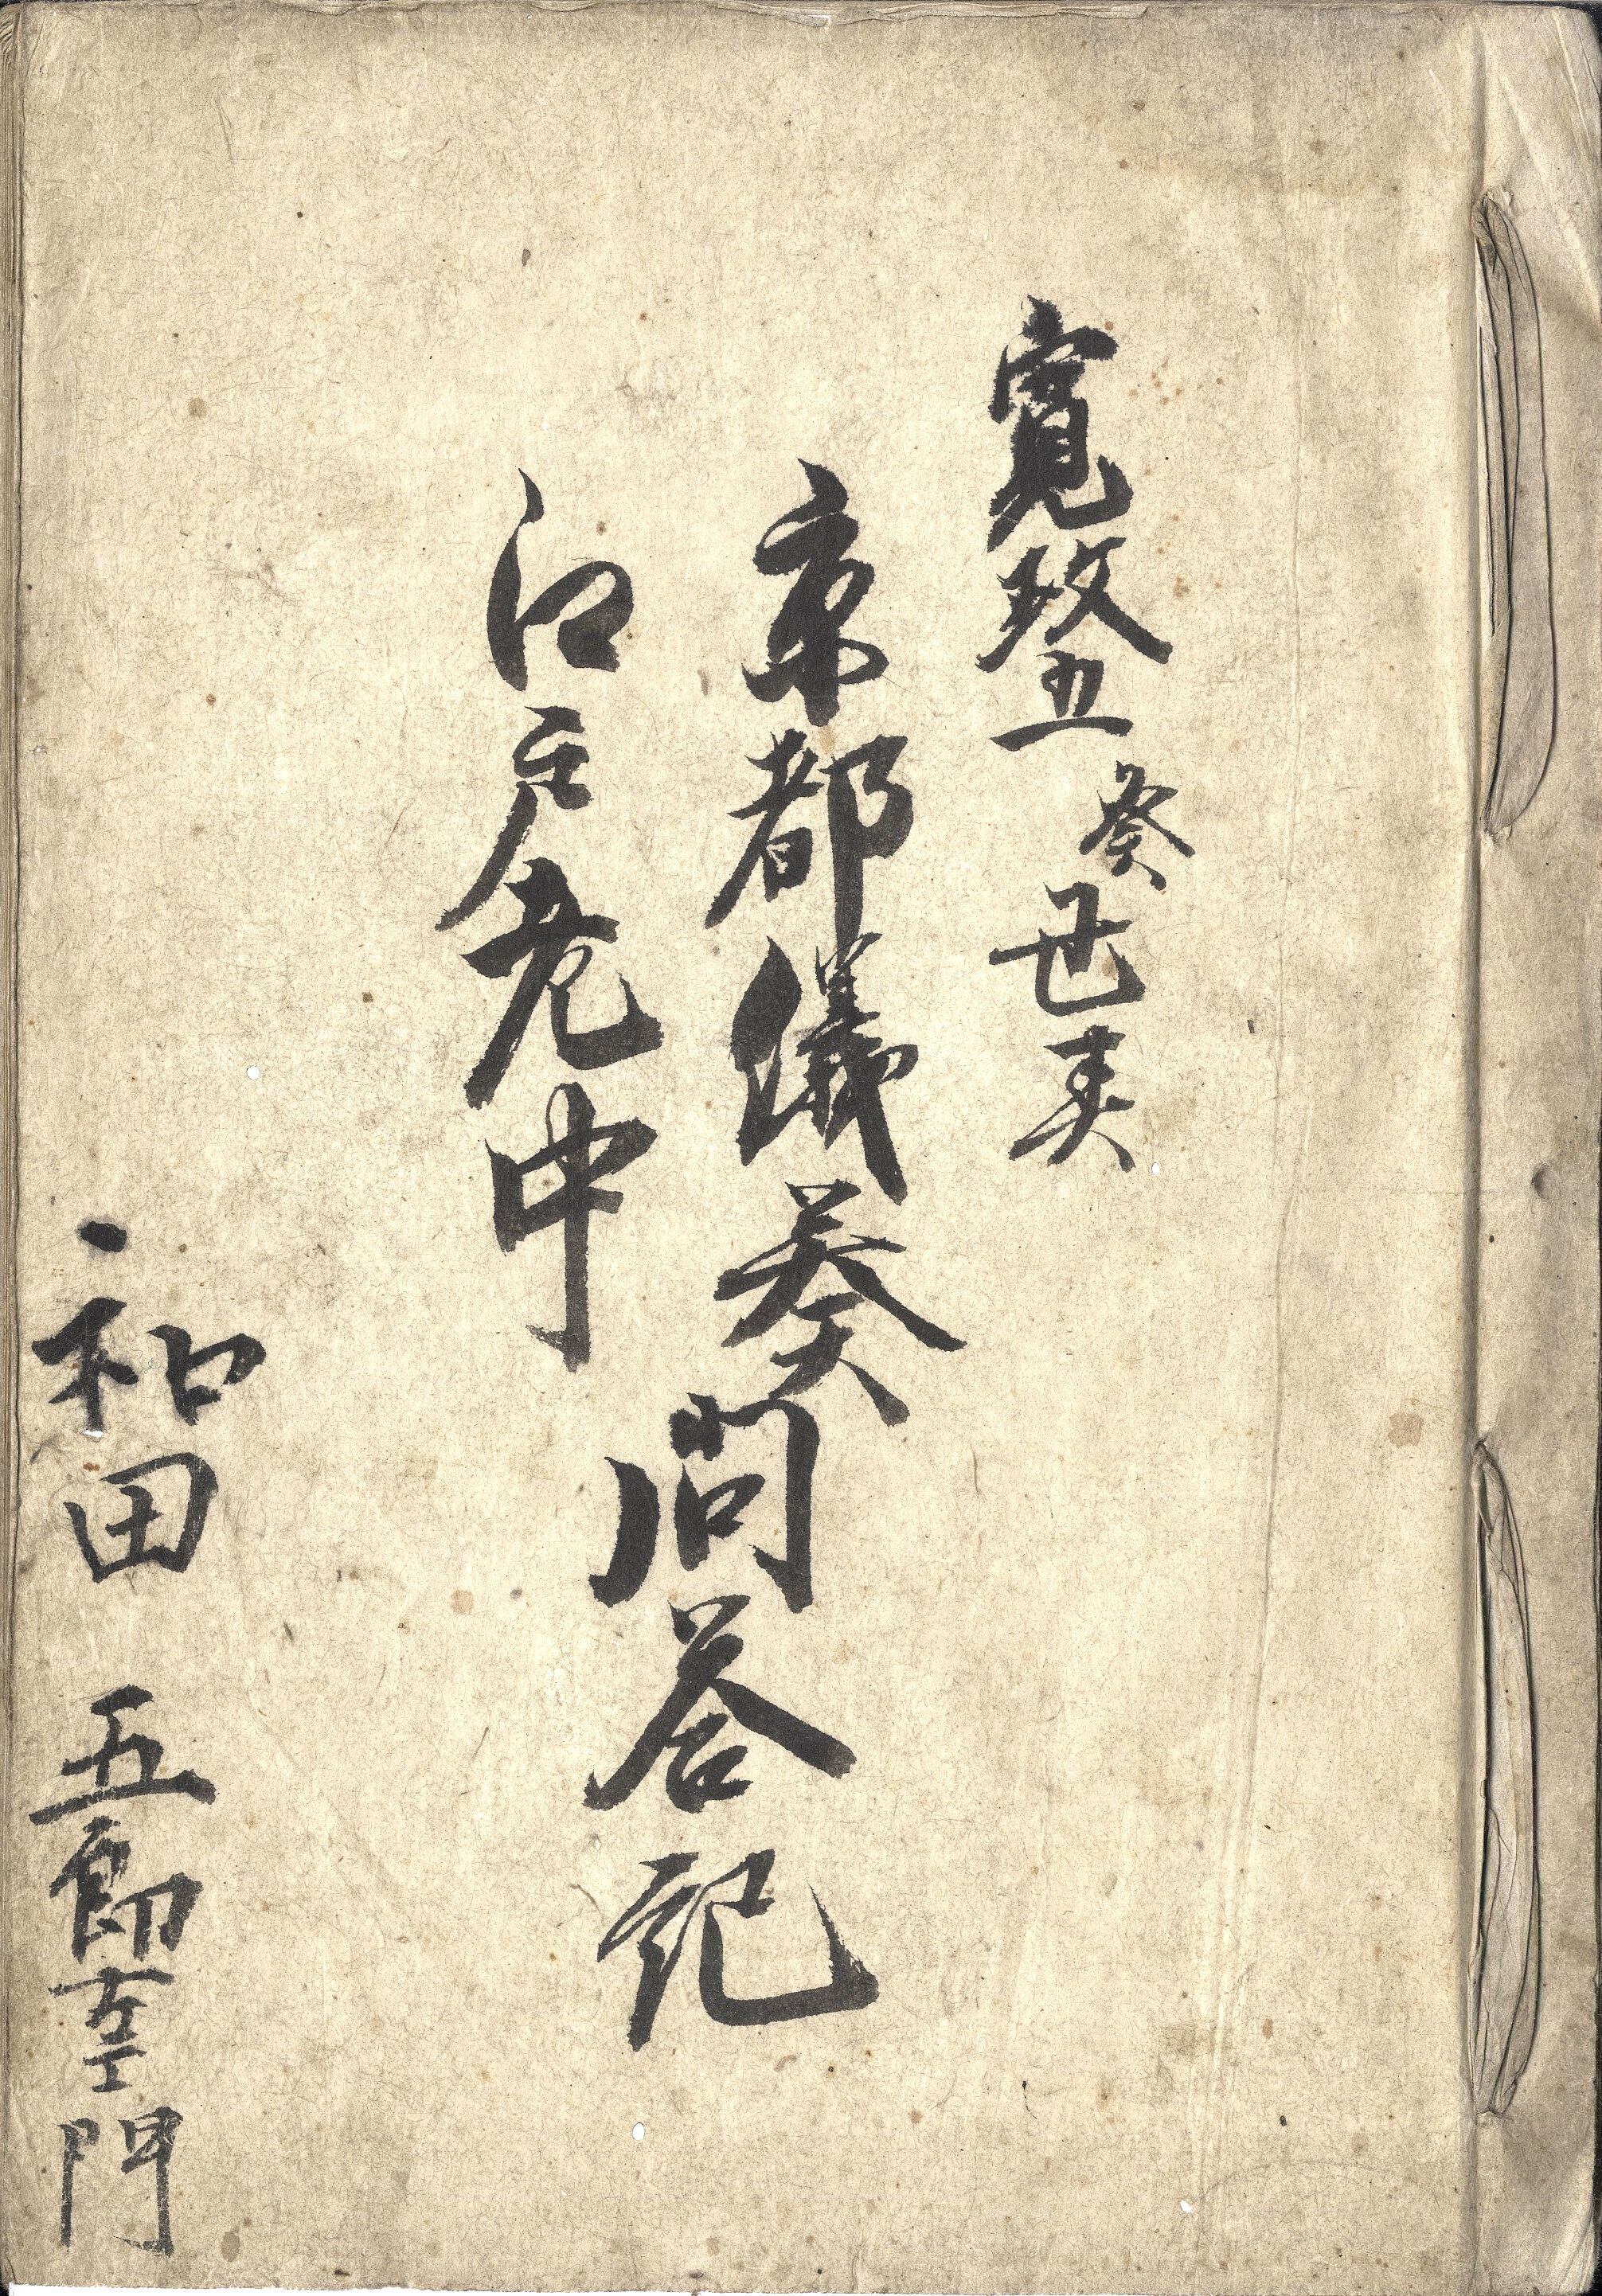 寛政五癸丑
京都儀奏問答記
江戸老中
和田 五郎左エ門